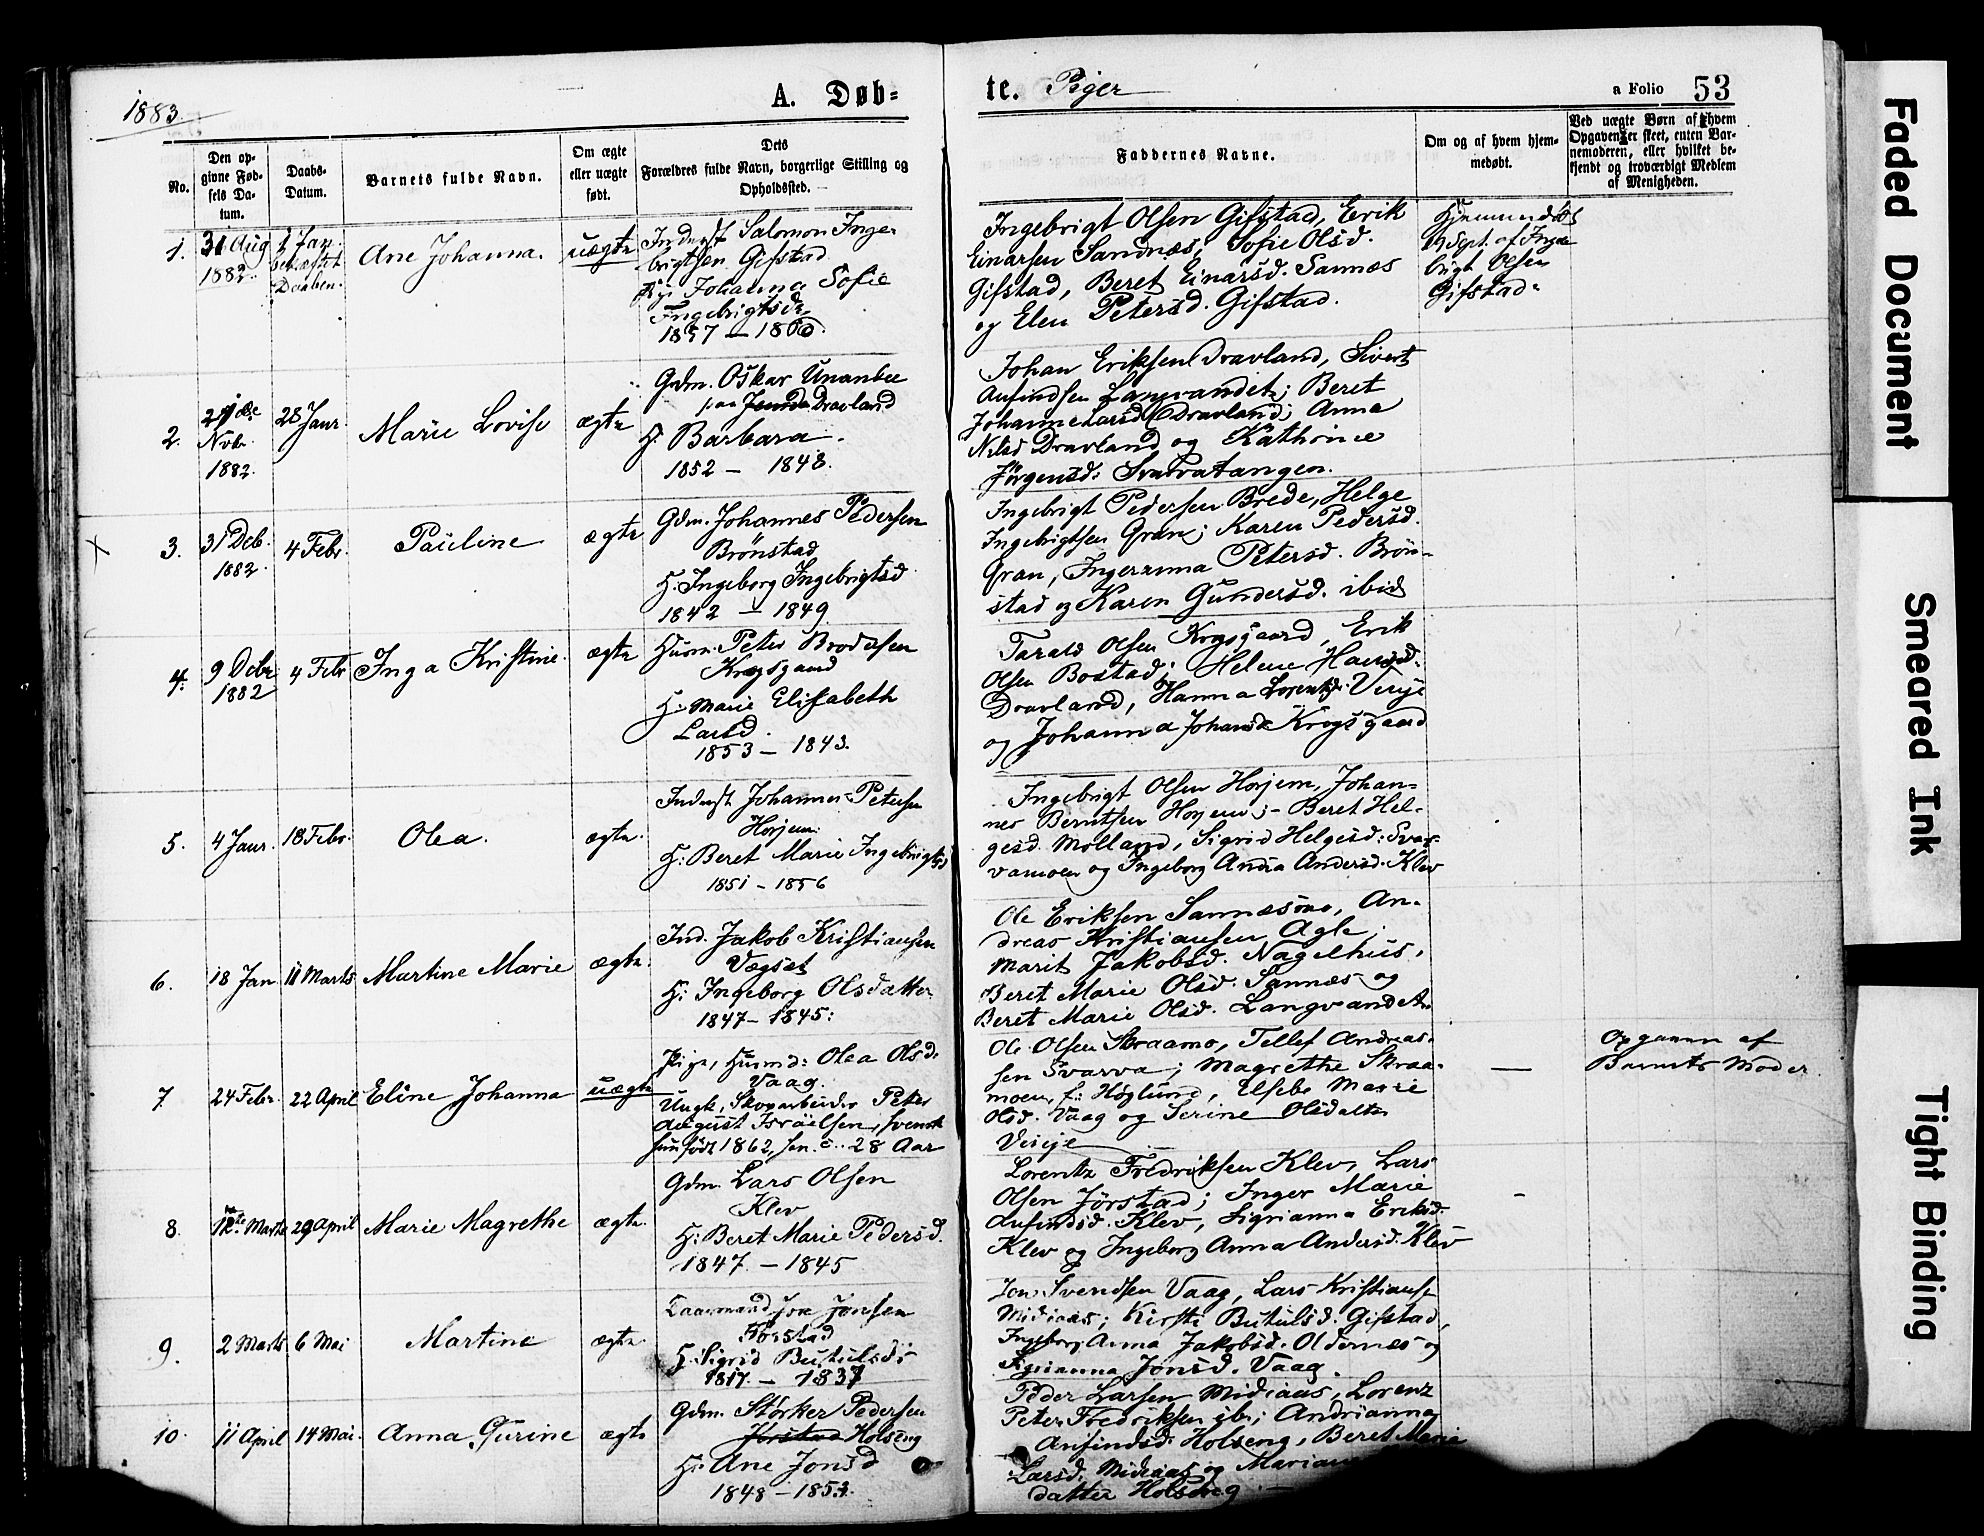 1883.
A. Døb=
te. Piger
a Folio 53
No.
Den op-
givne Fød-
sels Da-
tum.
Daabs-
Datum.
Barnets fulde Navn.
Om ægte
eller uægte
født.
Dets
Forældres fulde Navn, borgerlige Stilling og
Opholdssted.
Faddernes Navne.
Om og af hvem hjem-
medøbt.
Ved uægte Børn af hvem
Opgaven er skeet, enten Bar-
nemoderen, eller hvilket be-
kjendt og troværdigt Medlem
af Menigheden.
1.
31 Aug
1882.
1 Jan.
bekræftet
Daaben.
Ane Johanna.
uægte
Inderst Salomon Inge-
brigtsen Gifstad
Pige Johanna Sofie
Ingebrigtsdr
1857 — 1860.
Ingebrigt Olsen Gifstad, Erik
Einarsen Sandnæs, Sofie Olsd.
Gifstad, Beret Einarsd. Sannæs
og Elen Petersd. Gifstad.
Hjemmedøbt
19 Sept. af Inge
brigt Olsen
Gifstad.
2.
Nvbr.
1882.
28 Janr
Marie Lovise
ægte
Gdm. Oskar Unanbee
paa Dravland
H. Barbara.
1852 — 1848.
Johan Eriksen Dravland, Sivert
Anfindsen Langvandet; Beret
Johanne Larsd Dravland; Anna
Nilsd Dravland og Kathrine
Jørgensd: Svarvatangen.
3.
31 Deb.
1882.
4 Febr.
Pauline
ægte
Gdm. Johannes Pedersen
Brønstad
H. Ingeborg Ingebrigtsd
1842 — 1849
Ingebrigt Pedersen Brede, Helge
Ingebrigtsen Gran; Karen Pedersd.
Gran, Ingeranna Petersd. Brøn-
stad og Karen Gundersd. ibid
4.
9 Debr
1882
4 Febr
Inga Kristine.
ægte
Husm. Peter Brodersen
Krogsgaard
H. Marie Elisabeth
Larsd.
1853 — 1843.
Tarald Olsen Krogsgaard, Erik
Olsen Bostad; Helene
Dravland, Hanna Lorentsd. Veiye
og Johanna Johansd Krogsgaard
5.
4 Janr.
18 Febr.
Olea.
ægte.
Inderst Johannes Petersen
Horjem.
H: Beret Marie Ingebrigtsd
1851 – 1856
Ingebrigt Olsen Horjem, Johan-
nes Berntsen Horjem; – Beret Hel-
gesd. Molland, Sigrid Helgesd: Svar-
vamoen og Ingeborg Anna Andersd. Klev
6.
18 Jan.
11 Marts
Martine Marie
ægte.
Ind. Jakob Kristiansen
Vegset
H: Ingeborg Olsdatter
1847 – 1845:
Ole Eriksen Sannæsmo, An-
dreas Kristiansen Agle;
Marit Jakobsd. Nagelhus,
Beret Marie Olsd. Sannæs og
Beret Marie Olsd. Langvandet.
7.
24 Febr.
22 April
Eline Johanna
uægte
Pige, Husmd: Olea Olsd.
Vaag.
Ungk, Skovarbeider Peter
August Israelsen, svensk
hun født 1862, han c. 28 Aar
Ole Olsen Skraamo, Tellef Andreas-
sen Svarva; Magrethe Skraa-
moen f: Høglund, Elsebe Marie
Olsd. Vaag og Serine Olsdatter
Veiye
—
Opgaven af
Barnets Moder
8.
12te Marts
29 April
Marie Magrethe
ægte.
Gdm. Lars Olsen
Klev
H: Beret Marie Pedersd.
1847. – 1845
Lorentz Fredriksen Klev, Lars
Olsen Jørstad; Inger Marie
Anfindsd. Klev, Sigrianna Eriksd.
Klev og Ingeborg Anna Andersd. Klev
–
9.
2 Marts
6 Mai
Martine
ægte.
Kaarmand Jon Jonsen
Førstad
H: Sigrid Butulsd:
1817. – 1837
Jon Svendsen Vaag, Lars Kristianse
Midiaas; Kirsti Butulsd. Gifstad,
Ingeborg Anna Jakobsd. Oldernæs og
Sigrianna Jonsd. Vaag.
10.
11 April
14 Mai.
Anna Gurine
ægte
Gdm. Størker Pedersen
Holseng
H: Ane Jonsd
1848 – 1853.
Peder Larsen Midiaas, Lorenz
Peter Fredriksen ib.; Andrianna
Anfindsd: Holseng, Beret Marie
Larsd. Midiaas og
datter Holseng
Faded Document
Smeared Ink
Tight Binding